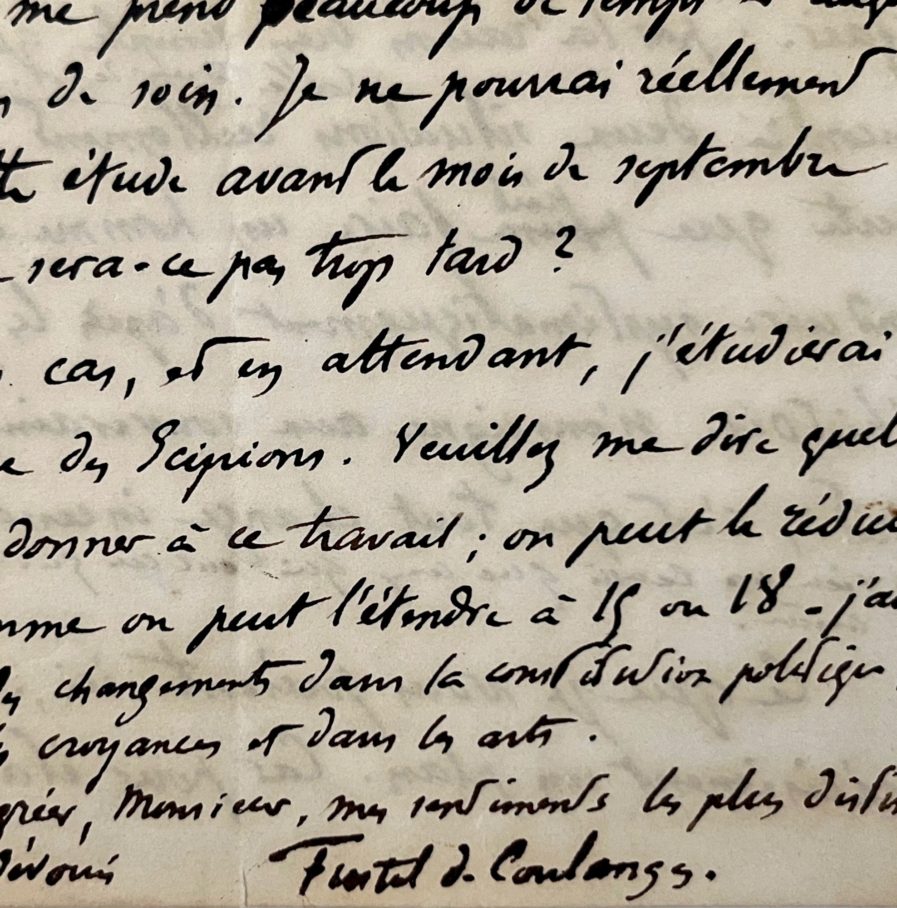 me prend beaucoup de temps
de soin. Je ne pourrai réellement
étude avant le mois de septembre
sera-ce pas trop tard ?
cas, et en attendant, j'étudierai
des Scipions. Veuillez me dire quel
donner à ce travail ; on peut le rédui
mme on peut l'étendre à 15 ou 18 - j'au
les changements dans la constitution politique
croyances et dans les arts.
gréer, Monsieur, mes sentiments les plus distin
dévoués Fustel de Coulanges.